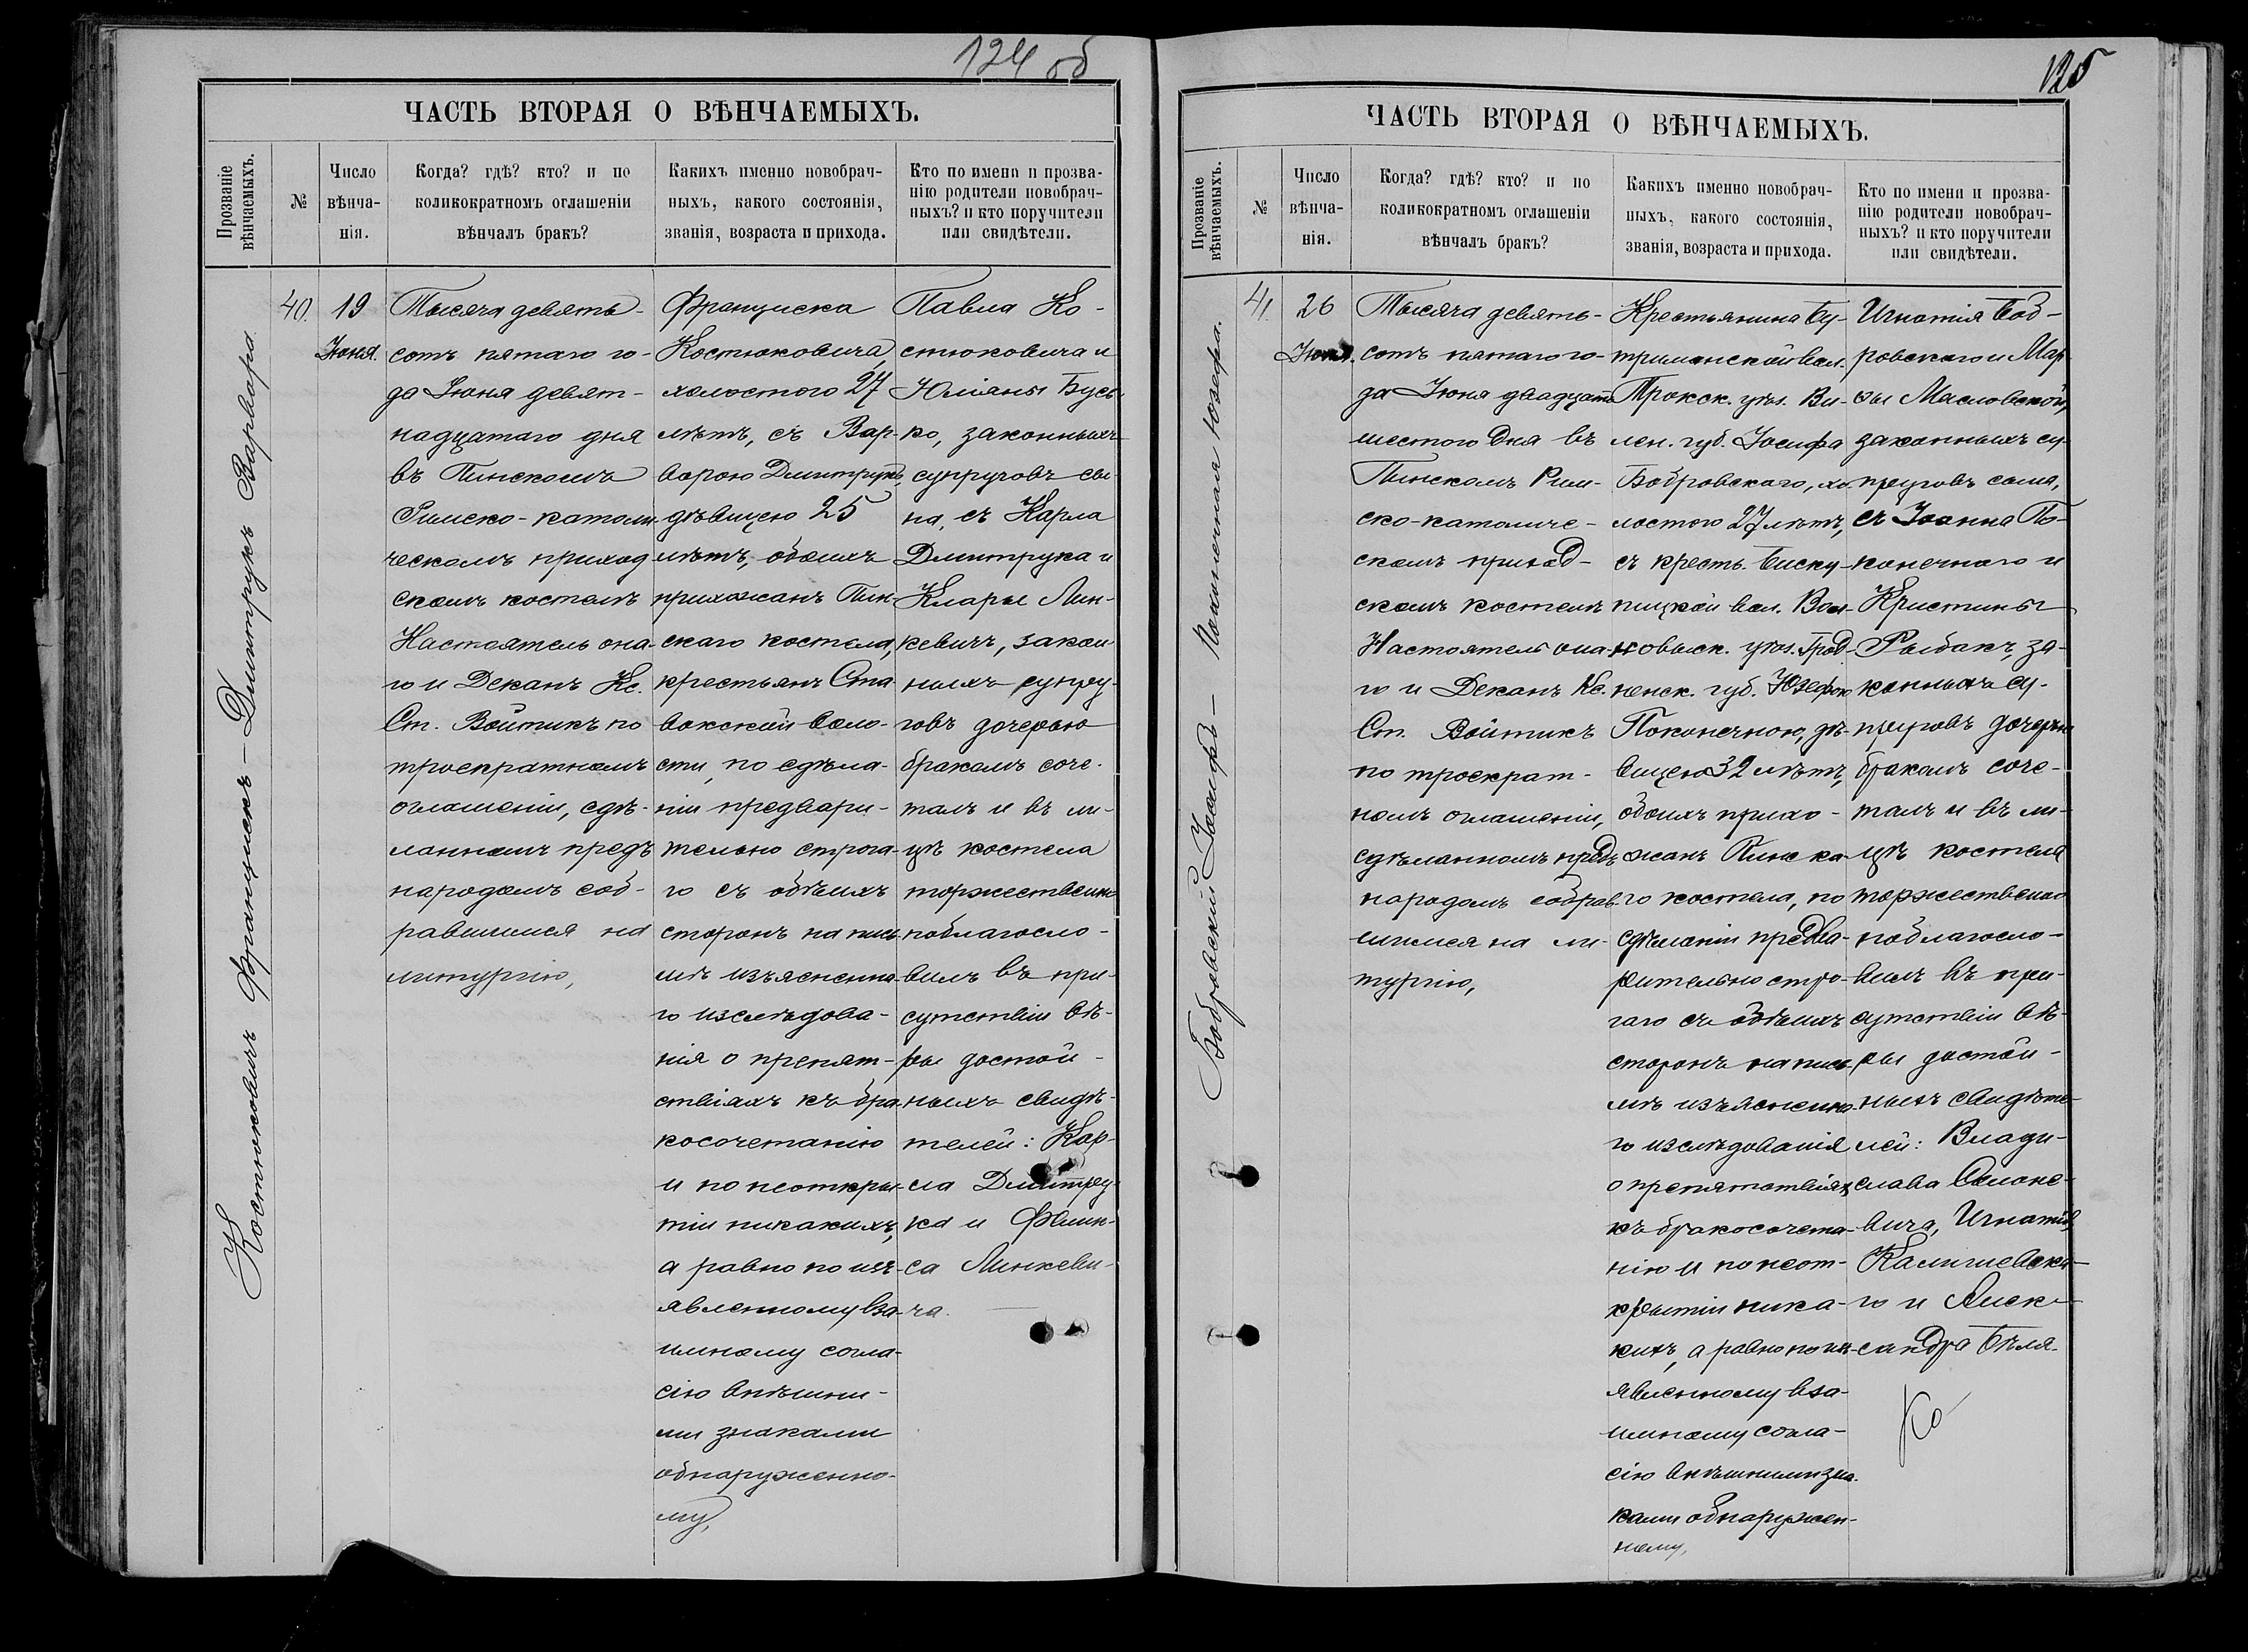 124 об
ЧАСТЬ ВТОРАЯ О ВѢНЧАЕМЫХЪ.
Прозваніе
вѣнчаемыхъ.
№
Число
вѣнча-
нія.
Когда? гдѣ? кто? и по
коликократномъ оглашеніи
вѣнчалъ бракъ?
Какихъ именно новобрач-
ныхъ, какого состоянія,
званія, возраста и прихода.
Кто по имени и прозва-
нію родители новобрач-
ныхъ? и кто поручители
или свидѣтели.
Костюковичъ Францискъ – Дмитрукъ Варвара
40.
19
Іюня.
Тысяча девять-
сотъ пятаго го-
да Іюня девят-
надцатаго дня
въ Пинскомъ
Римско-католи-
ческомъ приход
скомъ костелѣ
Настоятель она-
го и Деканъ Кс.
Ст. Войтикъ по
троекратномъ
оглашеніи, сдѣ-
ланномъ предъ
народомъ соб-
равшимся на
литургію,
Франциска
Костюковича,
холостого 27
лѣтъ, съ Вар-
варою Дмитрукъ,
дѣвицею 25
лѣтъ, обоихъ
прихожанъ Пин-
скаго костела,
крестьянъ Ста
вокской воло-
сти, по сдѣла-
ніи предвари-
тельно строга-
го съ обѣихъ
сторонъ на пись-
мѣ изъясненна-
го изслѣдова-
нія о препят-
ствіяхъ къ бра-
косочетанію
и по неоткры-
тіи никакихъ,
а равно по изъ-
явленному вза-
имному согла-
сію внѣшни-
ми знаками
обнаруженно-
му,
Павла Ко-
стюковича и
Юліаны Бусь-
ко, законныхъ
супруговъ сы-
на, съ Карла
Дмитрука и
Клары Лин-
кевичъ, закон-
ныхъ супру-
говъ дочерью
бракомъ соче-
талъ и въ ли-
цѣ костела
торжественно
поблагосло-
вилъ въ при-
сутствіи вѣ-
ры достой-
ныхъ свидѣ-
телей: Кар-
ла Дмитру-
ка и Финн-
са Линкеви-
ча.
125
ЧАСТЬ ВТОРАЯ О ВѢНЧАЕМЫХЪ.
Прозваніе
вѣнчаемыхъ.
№
Число
вѣнча-
нія.
Когда? гдѣ? кто? и по
коликократномъ оглашеніи
вѣнчалъ бракъ?
Какихъ именно новобрач-
ныхъ, какого состоянія,
званія, возраста и прихода.
Кто по имени и прозва-
нію родители новобрач-
ныхъ? и кто поручители
или свидѣтели.
Бобровскій Іосифъ – Поконечная Юзефа.
41.
26
Іюня.
Тысяча девять-
сотъ пятаго го-
да Іюня двадцать
шестого дня въ
Пинскомъ Рим-
ско-католиче-
скомъ приход-
скомъ костелѣ
Настоятель она-
го и Деканъ Кс.
Ст. Войтикъ
по троекрат-
номъ оглашеніи,
сдѣланномъ предъ
народомъ собрав-
шимся на ли-
тургію,
Крестьянина Бу-
триманской вол.
Трокск. уѣз. Ви-
лен. губ. Іосифа
Бобровскаго, хо-
лостого 27 лѣтъ,
съ крест. Биску-
пицкой вол. Вол-
ковыск. уѣз. Грод-
ненск. губ. Юзефою
Поконечною, дѣ-
вицею 32 лѣтъ,
обоихъ прихо-
жанъ Пинска-
го костела, по
сдѣланіи предва-
рительно стро-
гаго съ обѣихъ
сторонъ на пись-
мѣ изъясненна-
го изслѣдованія
о препятствіяхъ
къ бракосочета-
нію и по неот-
крытіи ника-
кихъ, а равно по изъ-
явленному вза-
имному согла-
сію внѣшними зна-
ками обнаружен-
ному,
Игнатія Боб-
ровскаго и Мар-
ы Масловской,
законныхъ су-
пруговъ сына,
съ Іоанна По-
конечнаго и
Кристины
Рыбакъ, за-
конныхъ су-
пруговъ дочерью
бракомъ соче-
талъ и въ ли-
цѣ костела
торжественно
поблагосло-
вилъ въ при-
сутствіи вѣ-
ры достой-
ныхъ свидѣте-
лей: Влади-
слава Симоно-
вича, Игнатія
Калишевска-
го и Алек-
сандра Бѣля-
ко